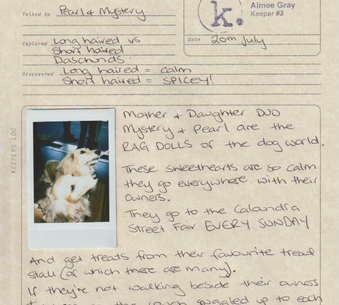 Talked to Pearl & Mystery
k.
Aimee Gray
Keeper #2
Explored Long haired vs
Short haired
Daschunds
Date 20th July
Discovered Long haired = calm
Short haired = SPICEY!
KEEPERS LOG
Mother & Daughter DUO
Mystery & Pearl are the
RAG DOLLS of the dog world.
These sweethearts are so calm
they go everywhere with their
owners.
They go to the Caloundra
Street Fair EVERY SUNDAY
And get treats from their favourite treat
stall (of which there are many).
If they're not walking beside their owners
snuggled up to each